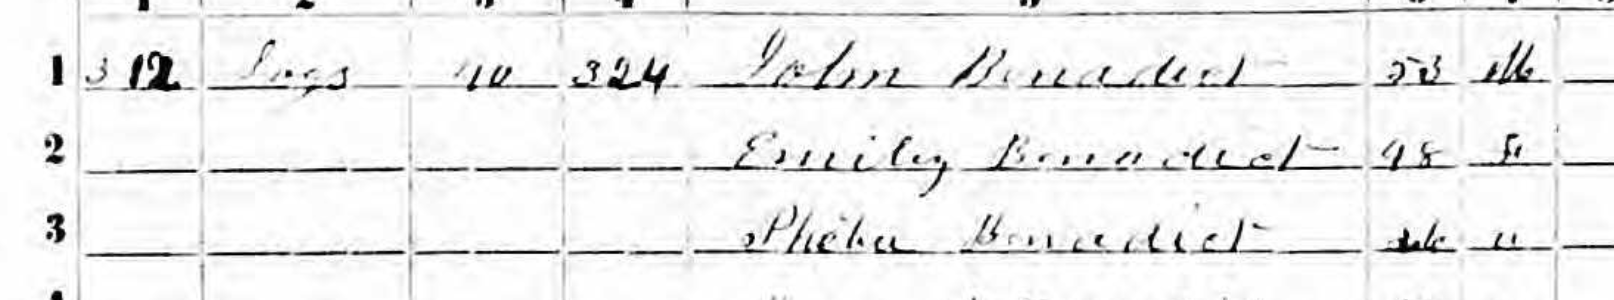 1 312 Logs 40 324 John Benadict 53 M
2 Emily Benadict 48 F
3 Pheba Benadict "